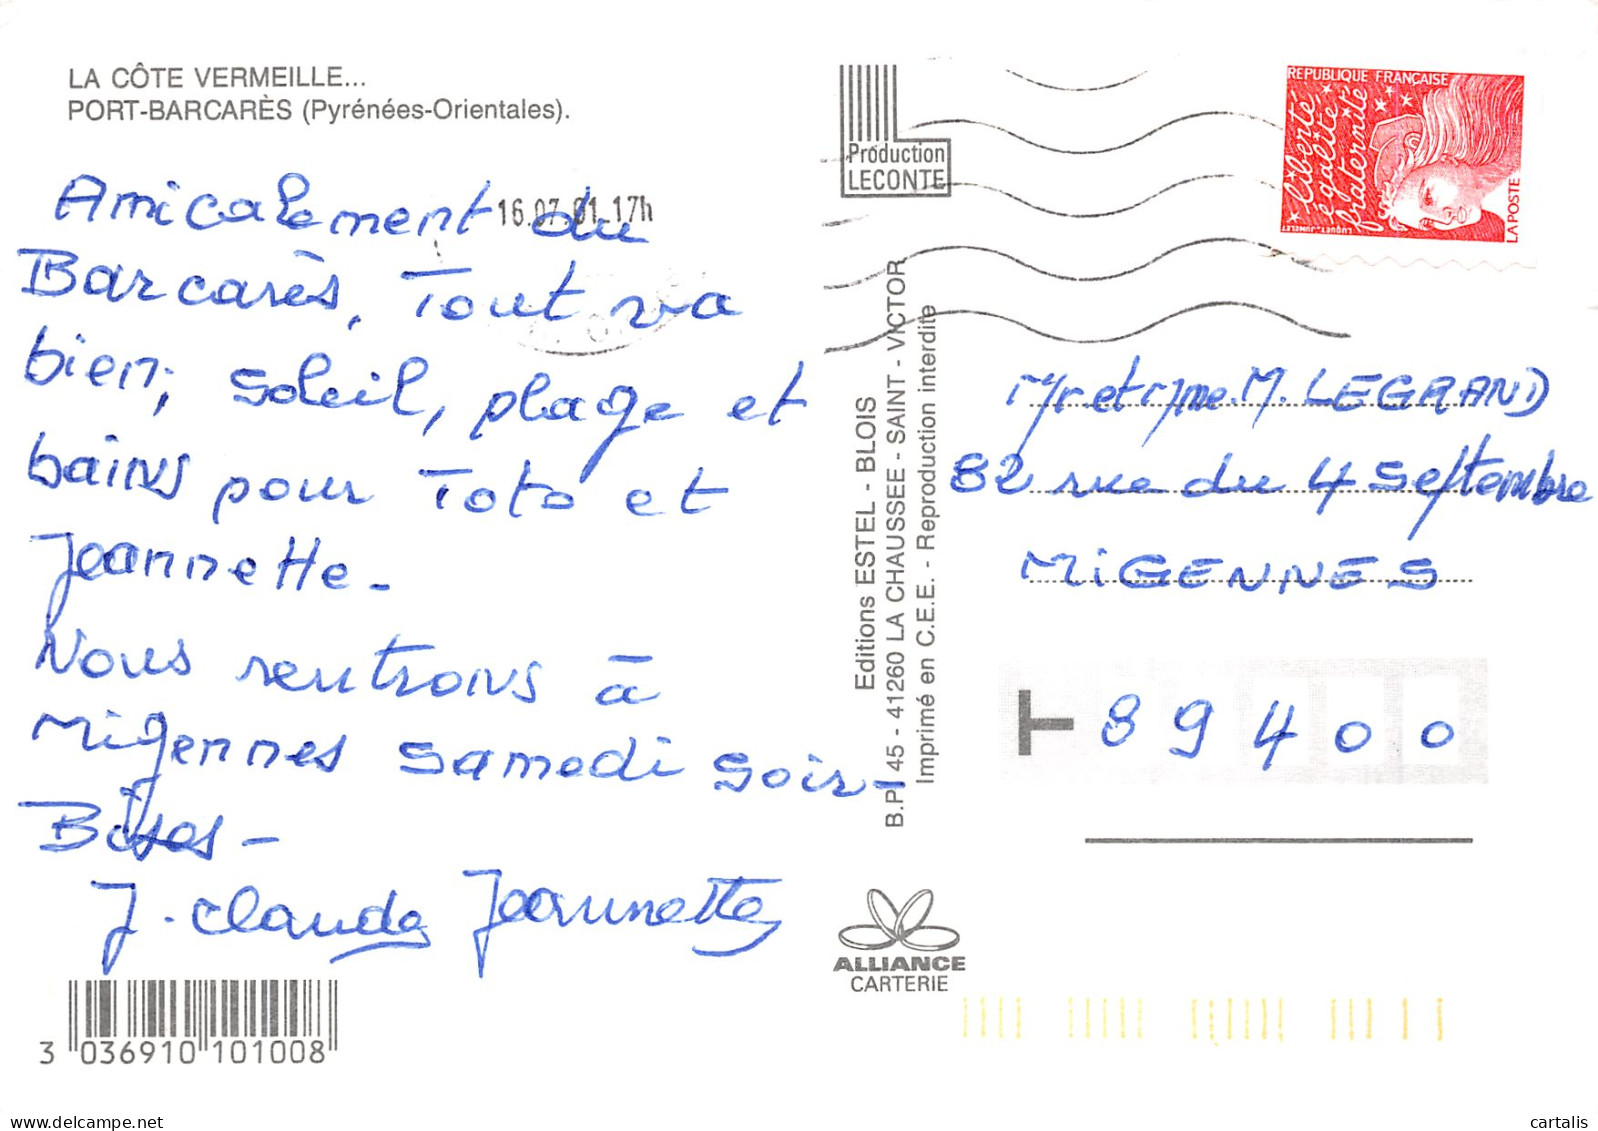 LA CÔTE VERMEILLE...
PORT-BARCARÈS (Pyrénées-Orientales).
Amicalement du
Barcarès, Tout va
bien, soleil, plage et
bains pour Toto et
Jeannette -
Nous rentrons à
Migennes samedi soir -
Bises -
J. claude Jeannette
3 036910 101008
16.07.01 17h
Production
LECONTE
Editions ESTEL - BLOIS
B.P. 45 - 41260 LA CHAUSSEE - SAINT - VICTOR
Imprimé en C.E.E. - Reproduction interdite
ALLIANCE
CARTERIE
REPUBLIQUE FRANÇAISE
liberté
égalité
fraternité
LUQUET-JUMELET
LA POSTE
Mr et Mme. M. LEGRAND
82 rue du 4 Septembre
MIGENNES
89400
cartalis